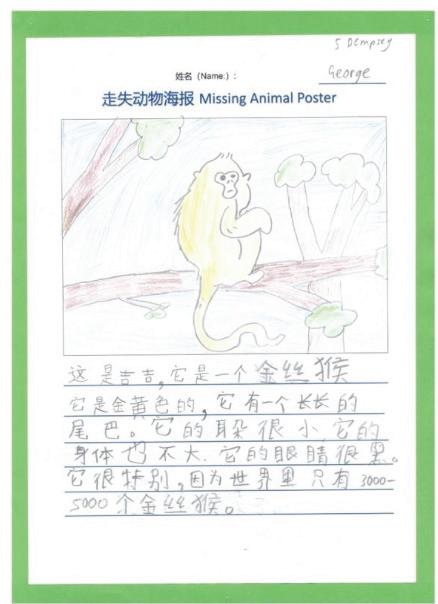 5 Dempsey
姓名 (Name:)：
George
走失动物海报 Missing Animal Poster
这是吉吉，它是一个金丝猴
它是金黄色的，它有一个长长的
尾巴。它的朵很小，它的
身体也不大。它的眼睛很黑。
它很特别，因为世界里只有3000-
5000个金丝猴。